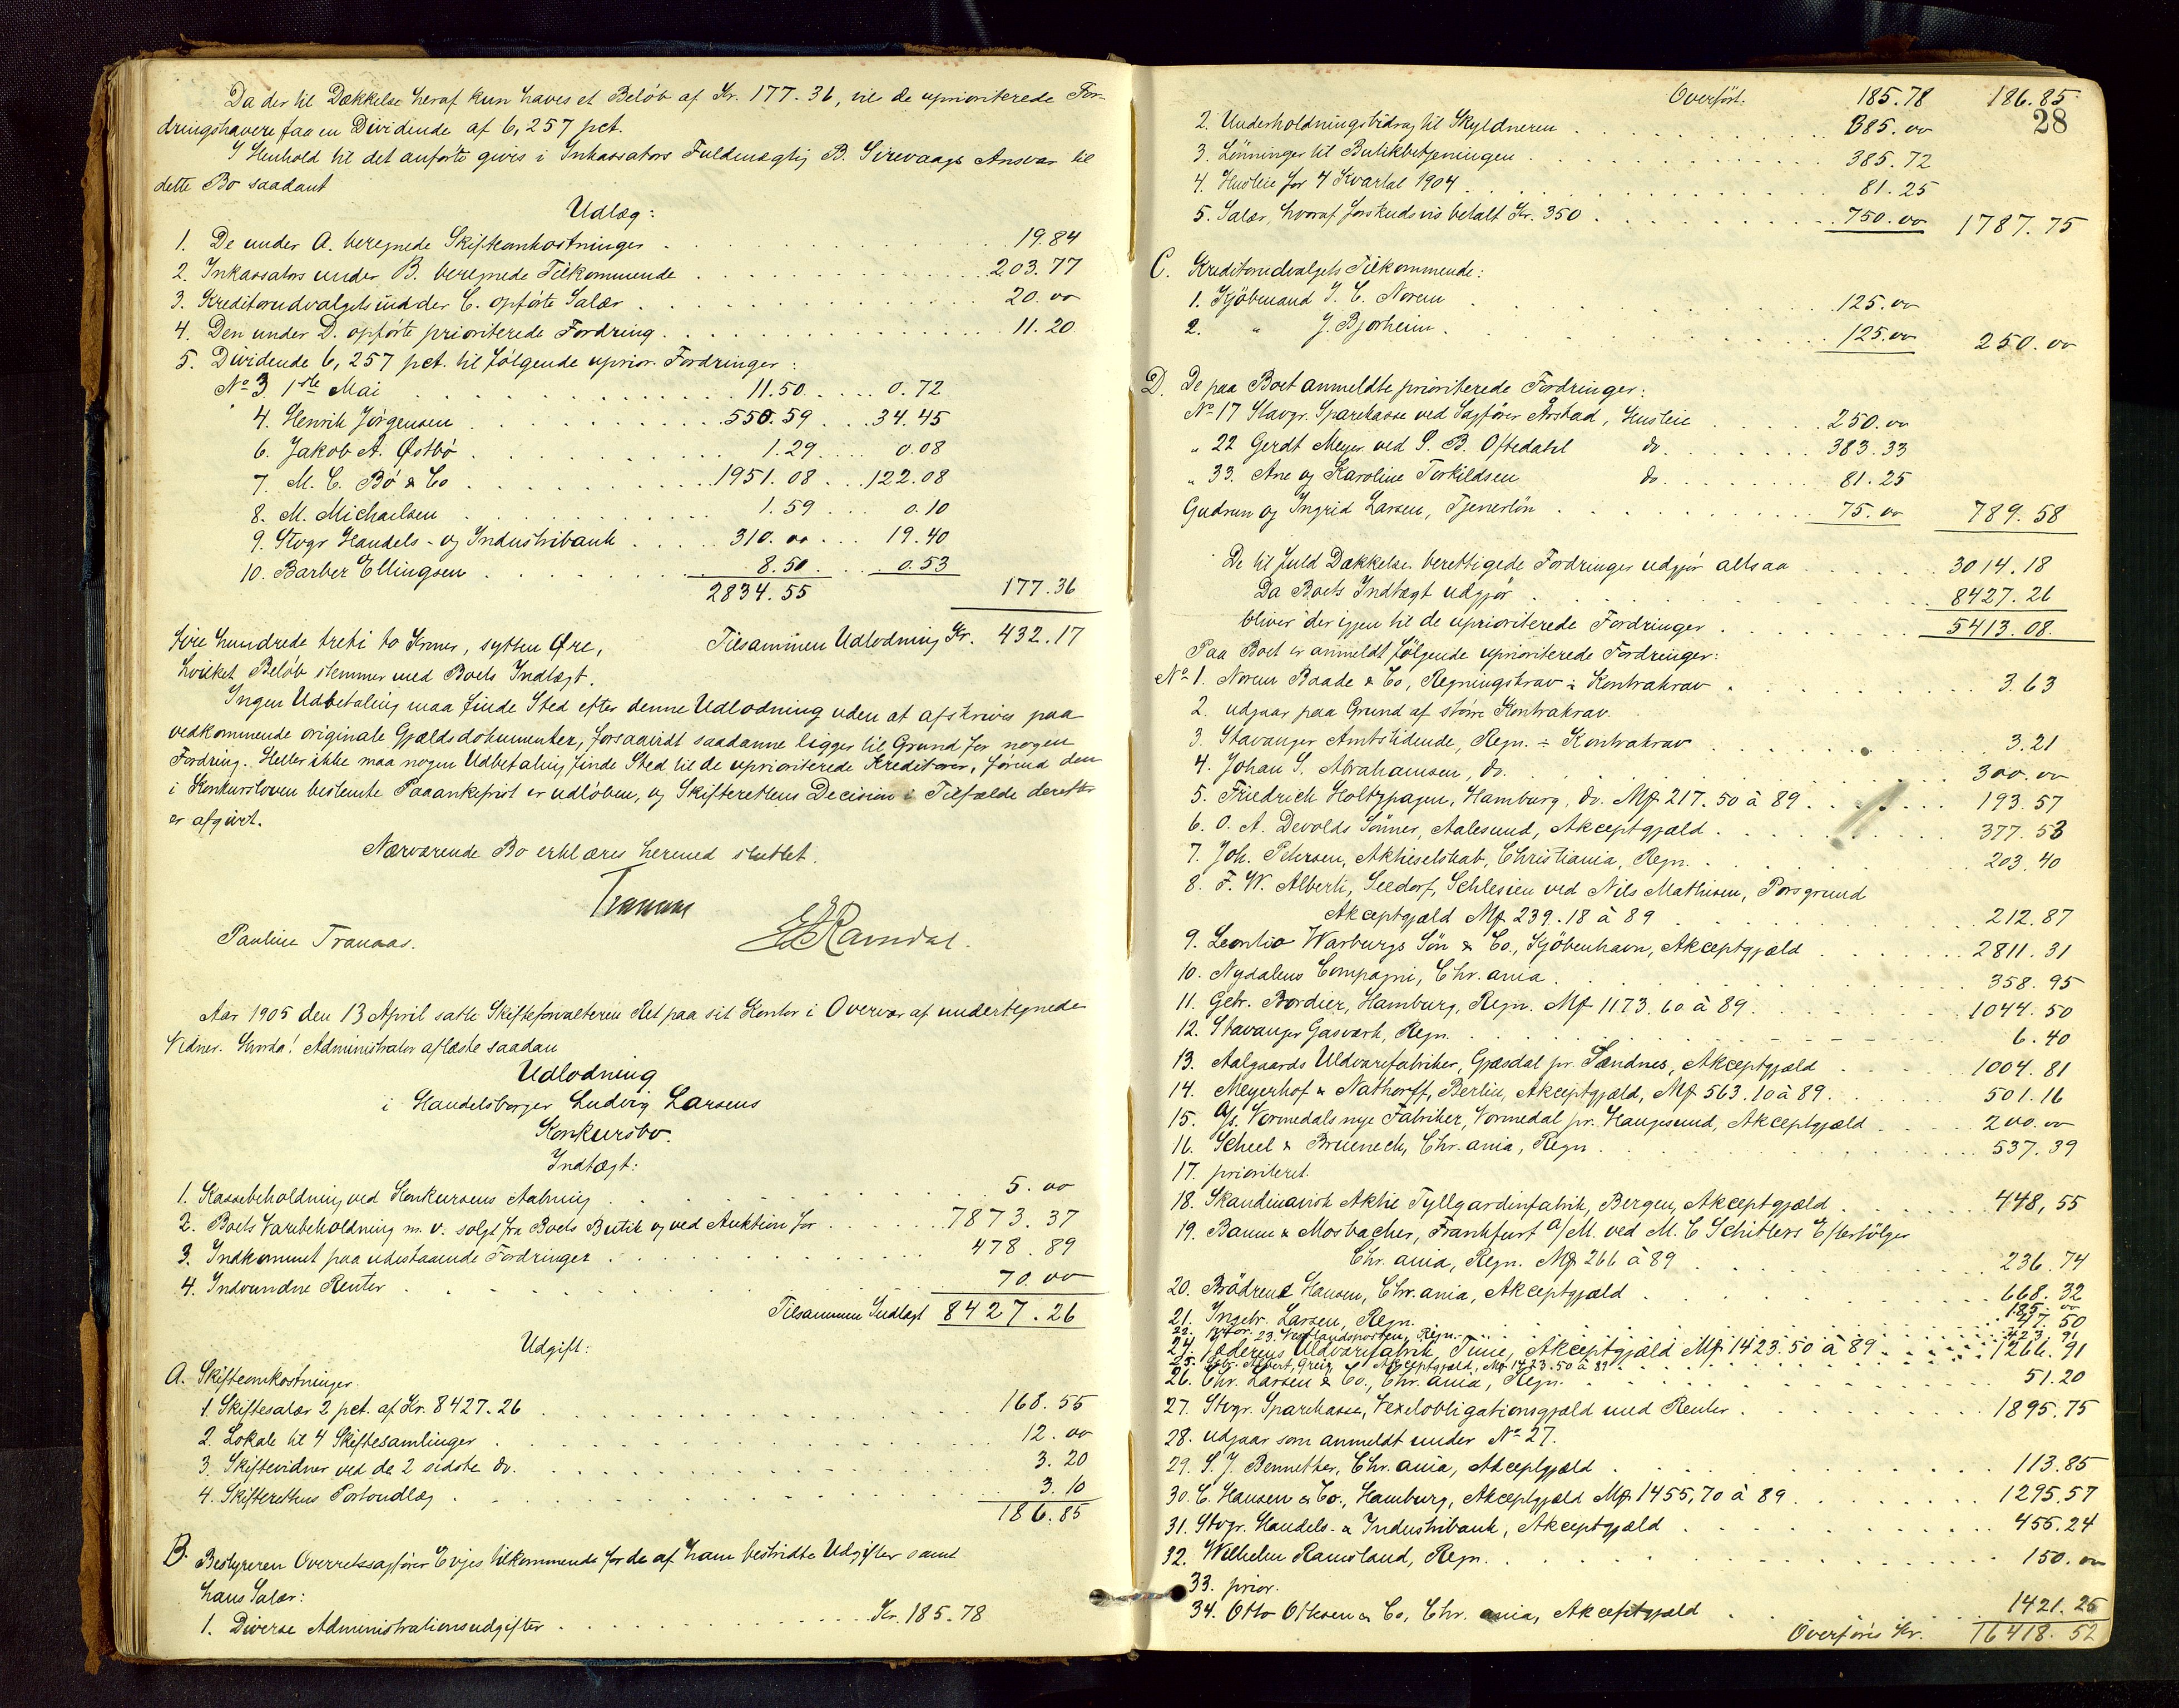 Da der til Dækkelse heraf kun haves et Beløb af Kr. 177.36, vil de uprioriterede For-
dringshavere faa en Dividende af 6,257 pct.
I Henhold til det anførte gives i Inkassators Fuldmægtig B. Sirevaags Ansvar til
dette Bo saadant
Udlæg:
1. De under A. beregnede Skifteomkostninger 19.84
2. Inkassators under B. beregnede Tilkommende 203.77
3. Kreditorudvalgets under C. opførte Salær 20.00
4. Den under D. opførte prioriterede Fordring 11.20
5. Dividende 6,257 pct. til følgende uprior. Fordringer:
No 3 1ste Mai 11.50 0.72
4. Henrik Jørgensen 550.59 34.45
6. Jakob A. Østbø 1.29 0.08
7. M. C. Bø & Co 1951.08 122.08
8. M. Michaelsen 1.59 0.10
9. Stvgr Handels- og Industribank 310.00 19.40
10. Barber Ellingsen 8.50 0.53
2834.55 177.36
fire hundrede treti to Kroner, sytten Øre, Tilsammen Udlodning Kr. 432.17
hvilket Beløb stemmer med Boets Indtægt.
Ingen Udbetaling maa finde Sted efter denne Udlodning uden at afskrives paa
vedkommende originale Gjældsdokumenter, forsaavidt saadanne ligger til Grund for nogen
Fordring. Heller ikke maa nogen Udbetaling finde Sted til de uprioriterede Kreditorer, førend den
i Konkursloven bestemte Paaankefrist er udløben, og Skifterettens Decision i Tilfælde derefter
er afgivet.
Nærværende Bo erklæres hermed sluttet.
Tranaas
Pauline Tranaas. E Ramdal.
Aar 1905 den 13 April satte Skifteforvalteren Ret paa sit Kontor i Overvær af undertegnede
Vidner. Hvorda! Administrator aflæste saadan
Udlodning
i Handelsborger Ludvig Larsens
Konkursbo.
Indtægt:
1. Kassebeholdning ved Konkursens Aabning 5.00
2. Boets Varebeholdning m. v. solgt fra Boets Butik og ved Auktion for 7873.37
3. Indkommet paa udestaaende Fordringer 478.89
4. Indvundne Renter 70.00
Tilsammen Indtægt 8427.26
Udgift:
A. Skifteomkostninger.
1. Skiftesalær 2 pct. af Kr. 8427.26 168.55
2. Lokale til 4 Skiftesamlinger 12.00
3. Skiftevidner ved de 2 sidste do. 3.20
4. Skifterettens Portoudlæg 3.10
186.85
B. Bestyreren Overretssagfører Evjes tilkommende for de af ham bestridte Udgifter samt
hans Salær:
1. Diverse Administrationsudgifter Kr. 185.78
Overført: 185.78 186.85
28
2. Underholdningsbidrag til Skyldneren 385.00
3. Lønninger til Butikbetjeningen 385.72
4. Husleie for 4 Kvartal 1904 81.25
5. Salær, hvoraf forskudsvis betalt Kr. 350 750.00 1787.75
C. Kreditorudvalgets Tilkommende:
1. Kjøbmand J. C. Norem 125.00
2. " J. Bjorheim 125.00 250.00
D. De paa Boet anmeldte prioriterede Fordringer:
No 17 Stavgr. Sparekasse ved Sagfører Årstad, Husleie 250.00
" 22 Gerdt Meyer ved S. B. Oftedahl do 383.33
" 33. Ane og Karoline Torkildsen do 81.25
Gudrun og Ingrid Larsen, Tjenerløn 75.00 789.58
De til fuld Dækkelse berettigede Fordringer udgjør altsaa 3014.18
Da Boets Indtægt udgjør 8427.26
bliver der igjen til de uprioriterede Fordringer 5413.08.
Paa Boet er anmeldt følgende uprioriterede Fordringer:
No 1. Norem Baade & Co, Regningskrav ÷ Kontrakrav 3.63
2. udgaar paa Grund af større Kontrakrav.
3. Stavanger Amtstidende, Regn. ÷ Kontrakrav 3.21
4. Johan S. Abrahamsen, do. 300.00
5. Friedrich Holtzhagen, Hamburg, do. Mk 217.50 à 89 193.57
6. O. A. Devolds Sønner, Aalesund, Akceptgjæld 377.53
7. Joh. Petersen, Aktieselskab, Christiania, Regn. 203.40
8. F. W. Alberti, Seedorf, Schlesien ved Nils Mathisen, Porsgrund
Akceptgjæld Mk 239.18 à 89 212.87
9. Leontio Warburgs Søn & Co., Kjøbenhavn, Akceptgjæld 2811.31
10. Nydalens Compagni, Chr.ania 358.95
11. Gebr. Bordier, Hamburg, Regn. Mk 1173.60 à 89 1044.50
12. Stavanger Gasværk, Regn. 6.40
13. Aalgaards Uldvarefabriker, Gjæsdal pr. Sandnes, Akceptgjæld 1004.81
14. Meyerhof & Nathorff, Berlin, Akceptgjæld, Mk 563.10 à 89. 501.16
15. A/s. Vormedals nye Fabriker, Vormedal pr. Haugesund, Akceptgjæld 200.00
16. Scheel & Bruenech, Chr.ania, Regn 537.39
17. prioriteret.
18. Skandinavisk Aktie Tyllgardinfabrik, Bergen, Akceptgjæld 448,55
19. Baum & Mosbacher, Frankfurt a/M. ved M. C Schitlers Efterfølger
Chr.ania, Regn. Mk 266 à 89 236.74
20. Brødrene Hansen, Chr.ania, Akceptgjæld 668.32
21. Ingebr. Larsen, Regn. 185.00
22. prior. 23. Vestlandsposten, Regn. 47.50
24. Jæderens Uldvarefabrik, Time, Akceptgjæld 423.91
25. Gebr. Albert, Greiz, Akceptgjæld, Mk 1423.50 à 89 1266.91
26. Chr. Larsen & Co., Chr.ania, Regn. 51.20
27. Stvgr. Sparekasse, Vexelobligationsgjæld med Renter 1895.75
28. udgaar som anmeldt under No 27.
29. S. J. Bennetter, Chr.ania, Akceptgjæld 113.85
30. C. Hansen & Co., Hamburg, Akceptgjæld Mk 1455,70 à 89 1295.57
31. Stvgr. Handels- & Industribank, Akceptgjæld 455.24
32. Wilhelm Ramsland, Regn. 150.00
33. prior.
34. Otto Ottesen & Co, Chr.ania, Akceptgjæld 1421.25
Overføres Kr. 16418.52